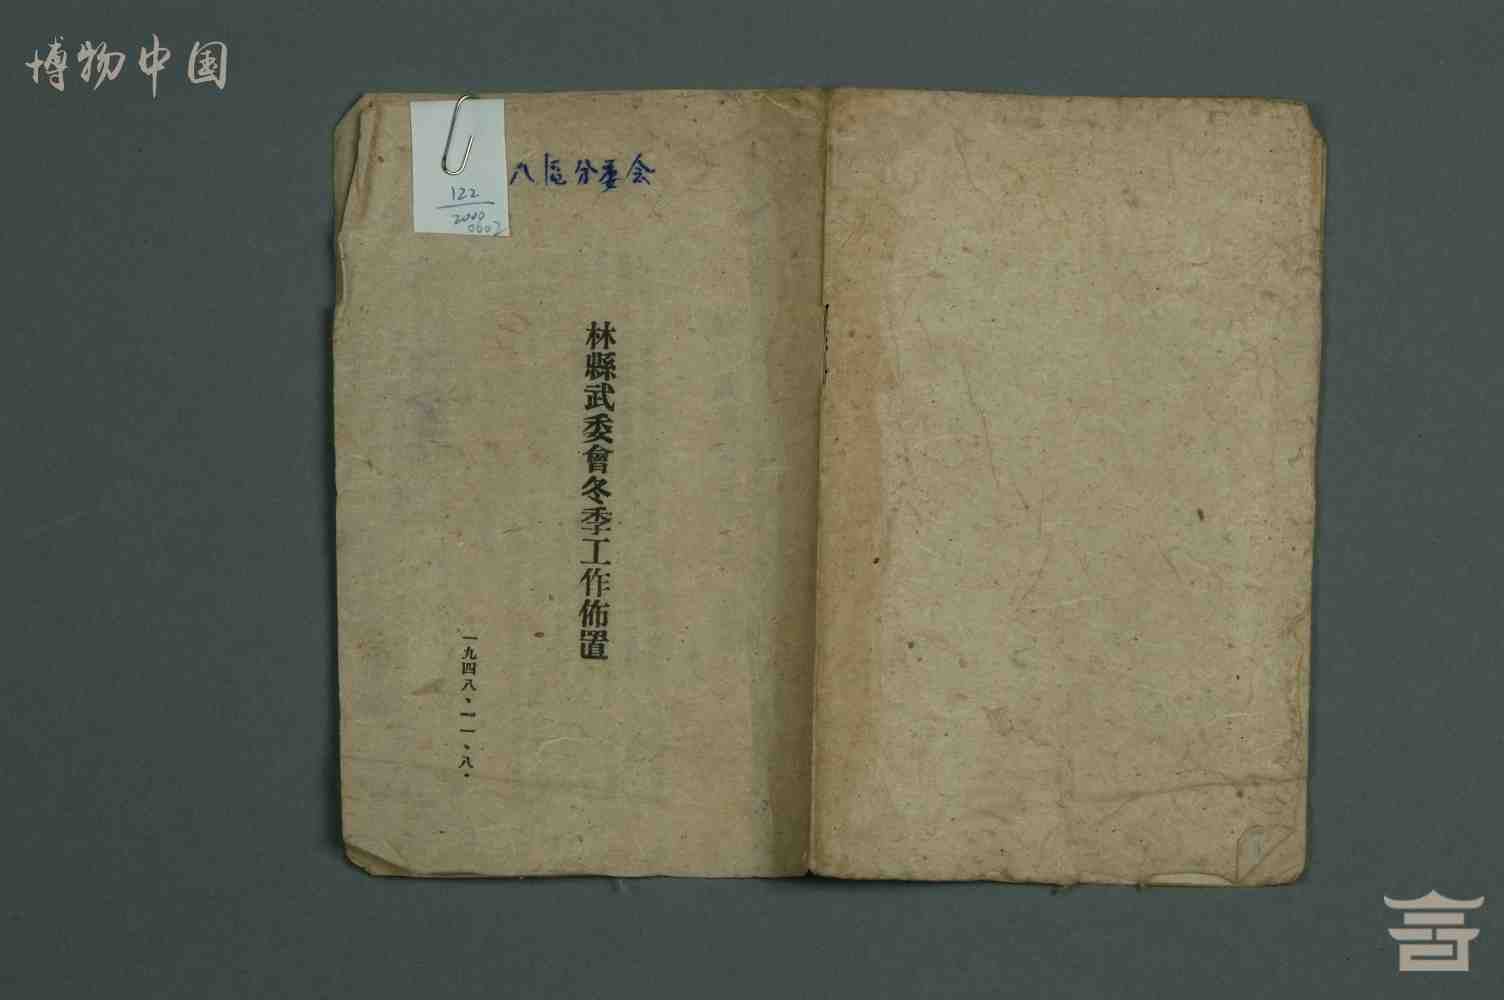 博物中国
八區分委会
122
2000
0602
林縣武委會冬季工作佈置
一九四八、一一、八．